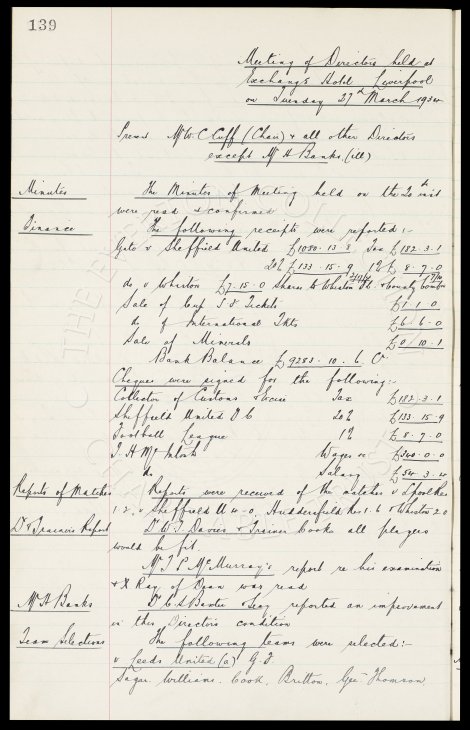 139
Meeting of Directors held at
Exchange Hotel Liverpool
on Tuesday 27th March 1934
Present Mr W. C. Cuff (Chair) & all other Directors
except Mr H Banks (ill)
Minutes
The Minutes of Meeting held on the 20th inst
were read & confirmed
Finance
The following receipts were reported :-
Gate v Sheffield United £1080 . 13 . 8 Tax £182 . 3 . 1
20% £133 . 15 . 9 1% £8 . 7 . 0
do v Whiston £7 . 15 . 0 Shares to Whiston & County
Sale of Cup Tickets £1 . 1 . 0
do of International Tkts £6 . 6 . 0
Sale of Minerals £0 10 . 1
Bank Balance £9283 . 10 . 6 Cr
Cheques were signed for the following :-
Collector of Customs & Excise Tax £182 . 3 . 1
Sheffield United F C 20% £133 . 15 . 9
Football League 1% £8 . 7 . 0
Wages £340 . 0 . 0
do Salary £54 . 3 . 4
Reports of Matches
Reports were received of the matches v
1-2, v Sheffield U 4-0, Huddersfield Res 1-6 & Whiston 2-0
Dr & Trainers Report
Dr W J Davies & Trainer Cooke all players
would be fit
Mr T P McMurray's report re his examination
& X Ray of was read
Mr H Banks
Dr C S Baxter reported an improvement
in this Directors condition
Team Selections
The following teams were selected :-
v Leeds United (a) G. J
Sagar, Williams, Cook, Britton, Gee, Thomson